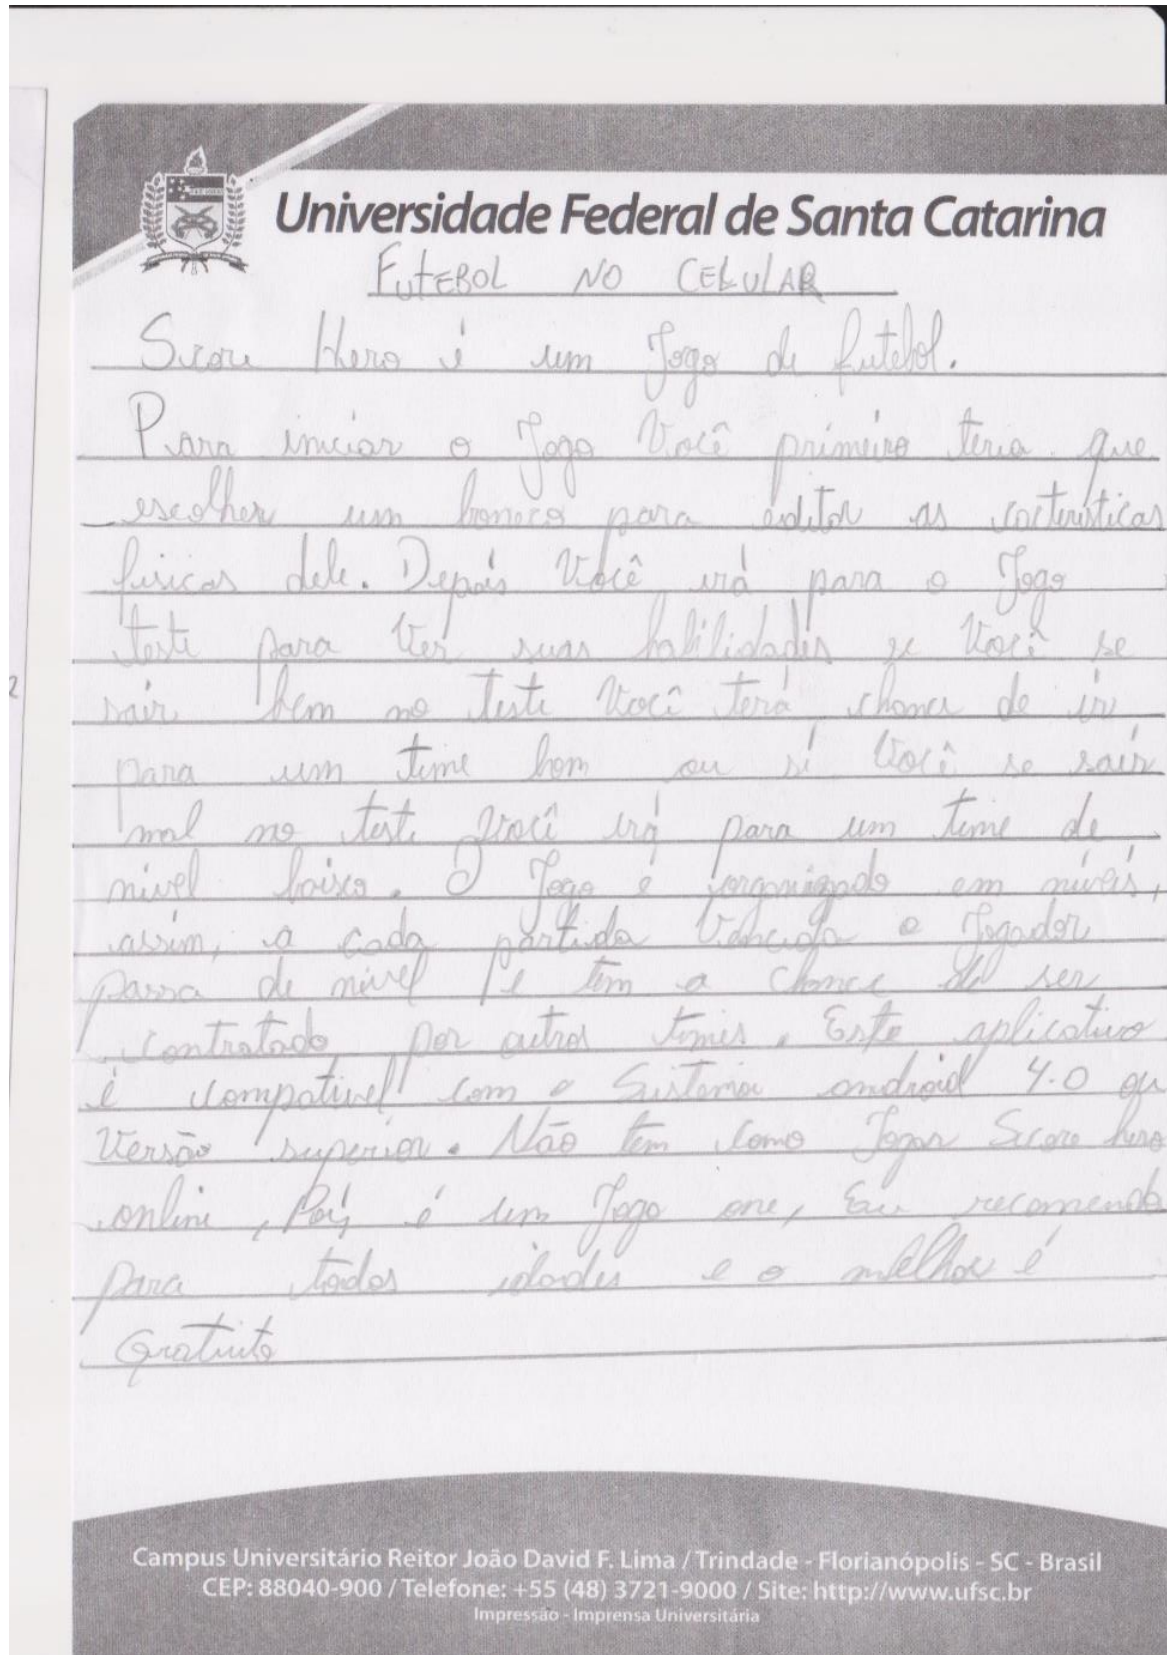 Universidade Federal de Santa Catarina
FutEBOL NO CELULAR
Score Hero é um Jogo de futebol.
Para iniciar o Jogo Você primeiro teria que
escolher um boneco para editar as cacteristicas
fisicas dele. Depois Você irá para o Jogo
teste para Ver suas habilidades se Você se
sair bem no Teste Você terá chance de ir
para um time bom ou sé Você se sair
mal no teste Você irá para um time de
nivel baixo. O Jogo é organizado em níveis,
assim, a cada partida Vencida o Jogador
passa de nível e tem a chance de ser
contratado por outros times. Este aplicativo
é compativel com o Sistema android 4.0 ou
Versão superior. Não tem como Jogar Score hero
online, Pois é um Jogo one, Eu recomendo
para todas idades e o melhor é
Gratuito
2
Campus Universitário Reitor João David F. Lima / Trindade - Florianópolis - SC - Brasil
CEP: 88040-900 / Telefone: +55 (48) 3721-9000 / Site: http://www.ufsc.br
Impressão - Imprensa Universitária